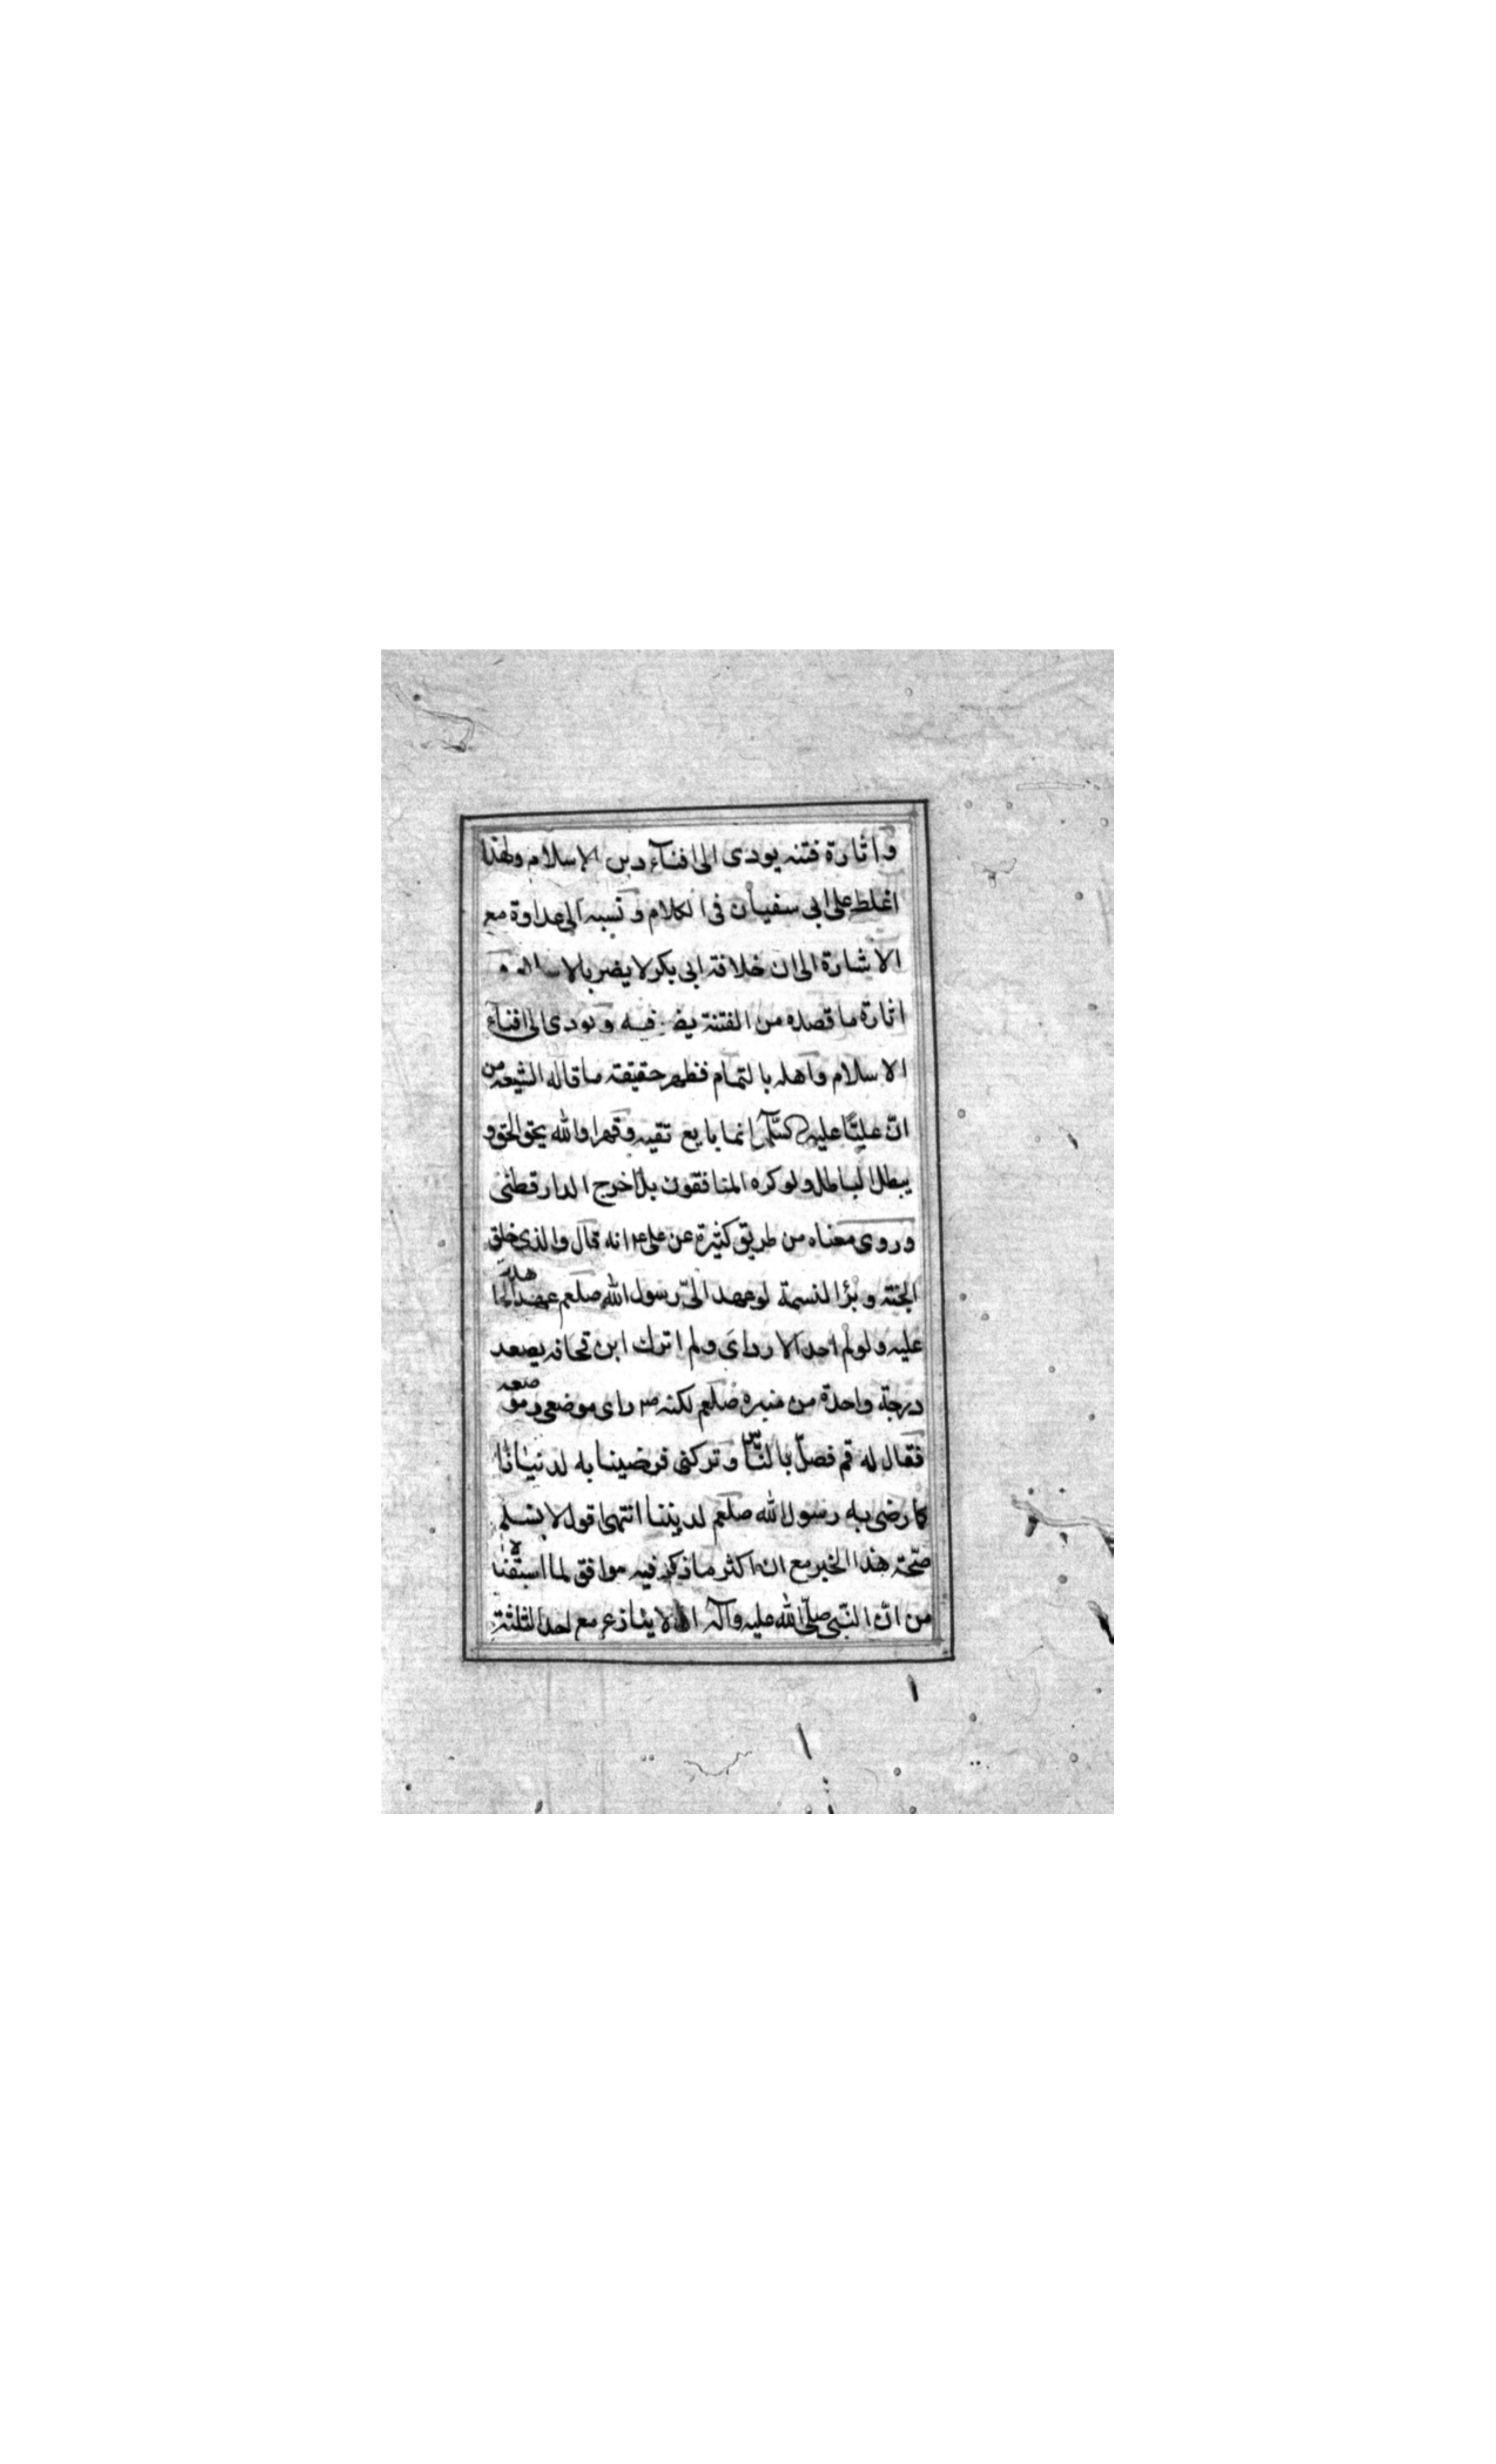 واثارة فتنه يودى الى افنآء دين الاسلام ولهذا
اغلظ على ابى سفيان فى الكلام و نسبه الى عداوة مع
الاشارة الى ان خلافة ابى بكر لا يضر بالاسلام و
اثارة ما قصده من الفتنة يضر فيه و يودى الى افناء
الاسلام واهله بالتمام فظهر حقيقة ما قاله الشيعه من
انّ عليّا عليه السّلم انما بايع تقيه وقهرا والله يحق الحق و
يبطل الباطل ولو كره المنافقون بل اخرج الدارقطنى
وروى معناه من طريق كثيرة عن على ع انه قال والذى خلق
الجنّه و برٔا النسمة لو عهد الىّ رسول الله صلعم عهدا لجاهدت
عليه ولو لم اجد الا ردآى ولم اترك ابن قحافه يصعد
درجة واحدة من منبره صلعم لكنه ص راى موضعى وموضعه
فقال له قم فصلّ بالنّاس وتركنى فرضينا به لدنيانا
كما رضى به رسول الله صلعم لديننا انتهى اقول لا نسلم
صحّة هذا الخبر مع ان اكثر ما ذكر فيه موافق لما اسبقنا
من انّ النّبى صلّى الله عليه وآله لا ينازع مع احد الثلثة